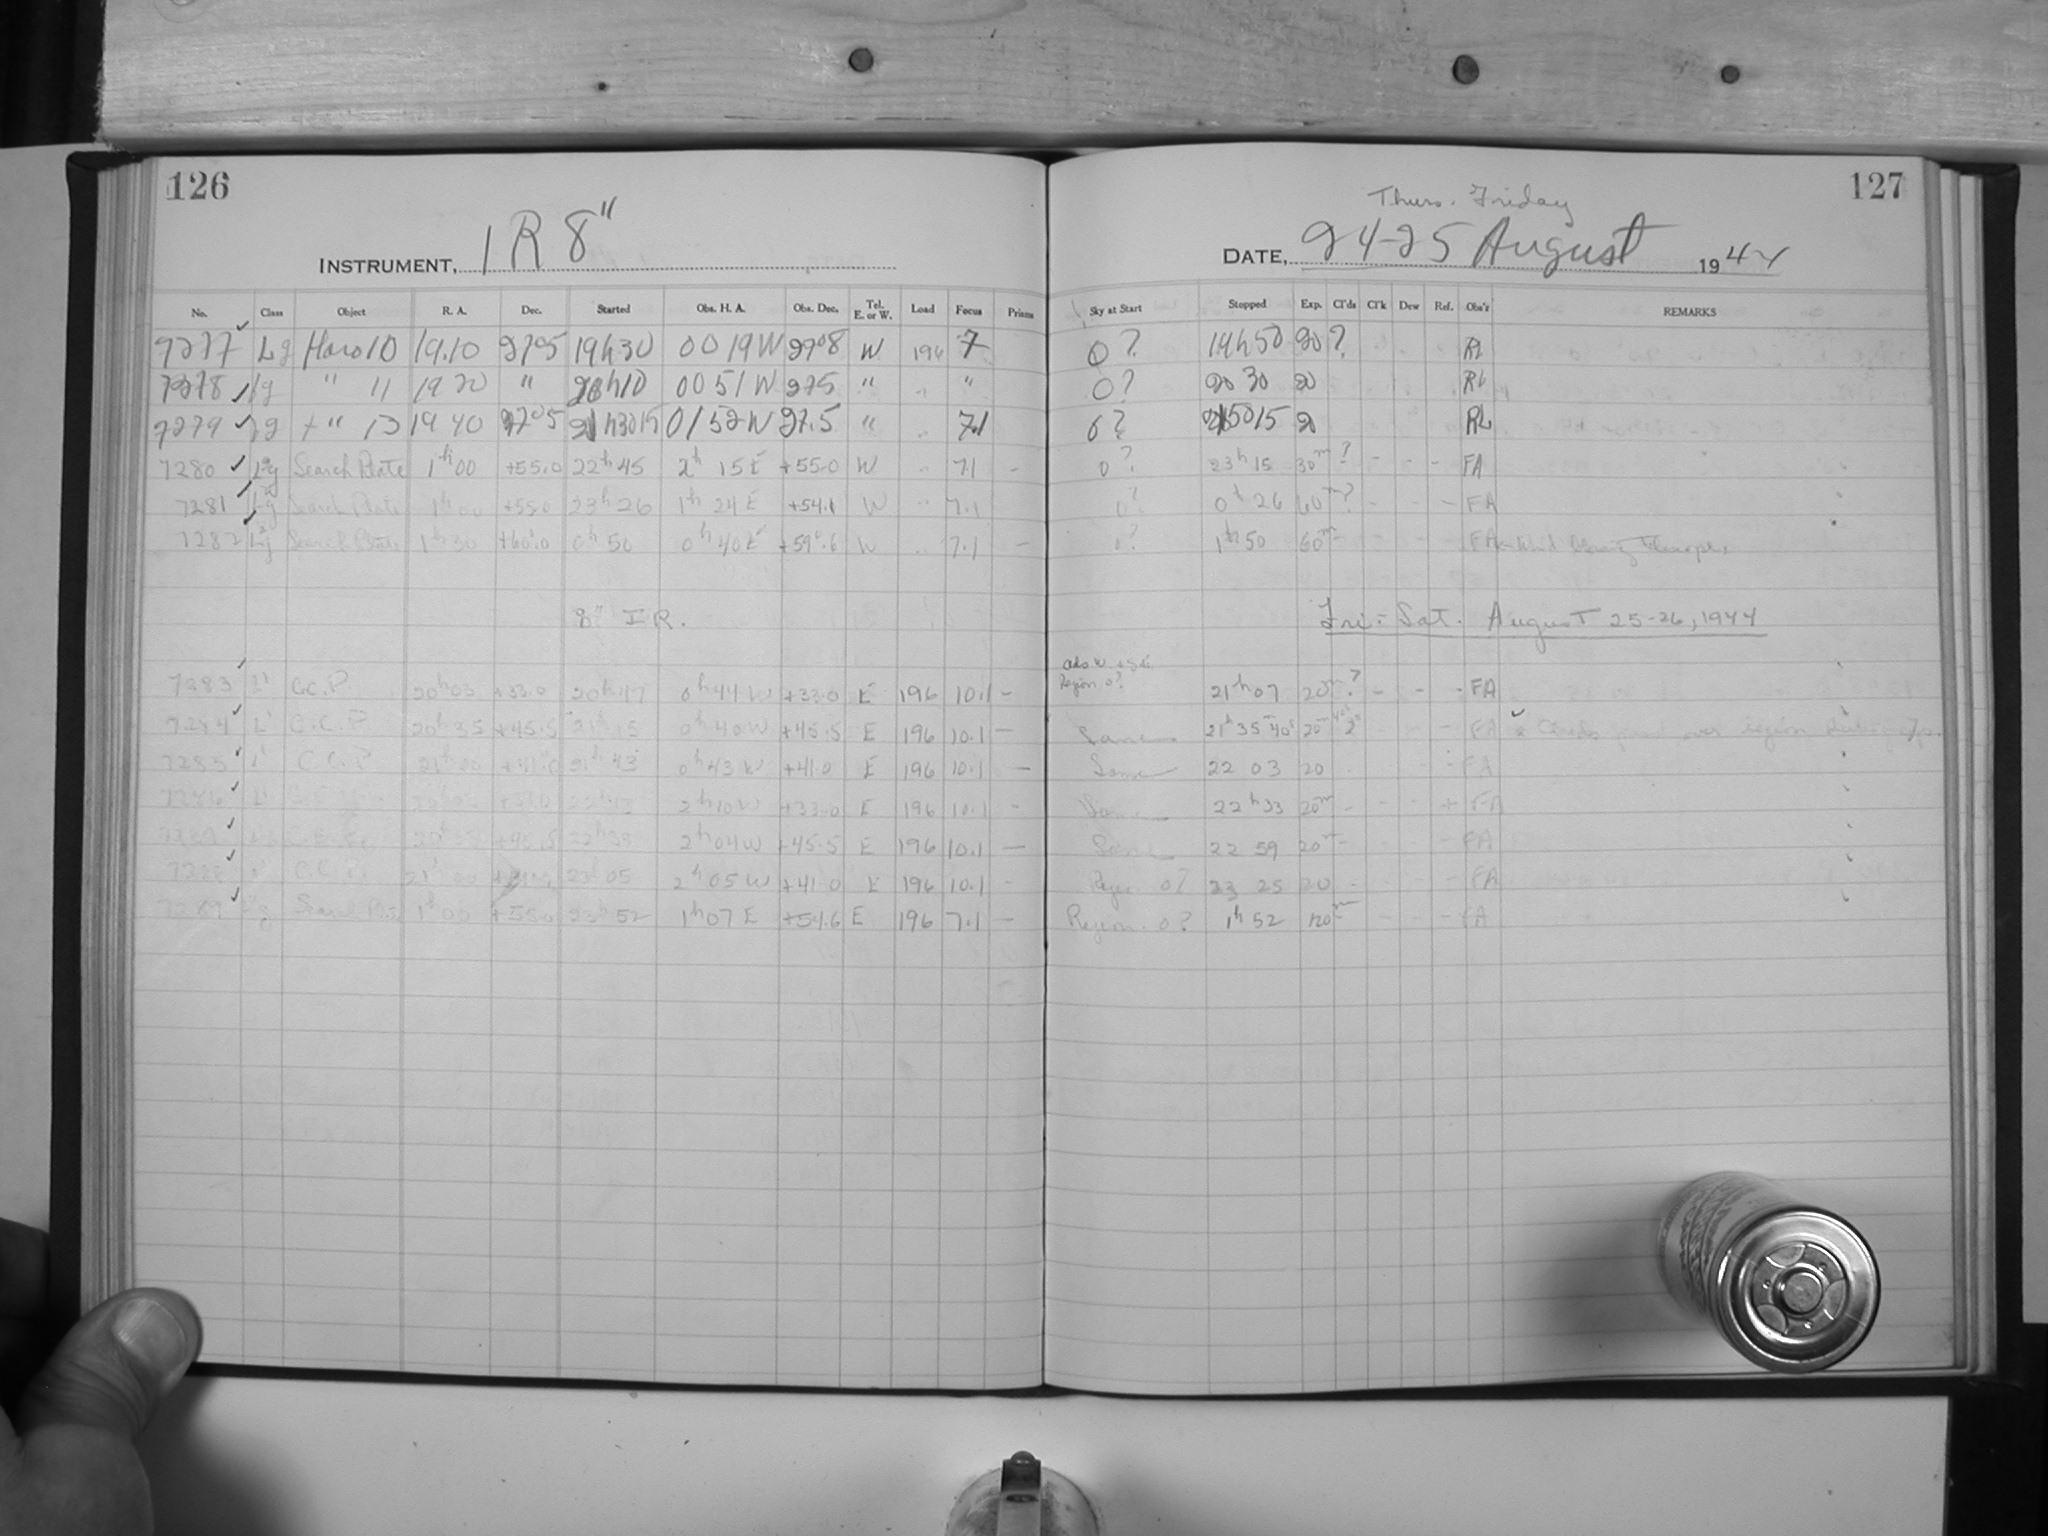 126
INSTRUMENT, 1 R 8"
No. Class Object R. A. Dec. Started Obs. H. A. Obs. Dec. Tel. E. or W. Load Focus Prisms
7277 Lg Haro 10 19.10 2705 19h30 0019W 2708 W 196 7
7278 Lg " 11 1920 " 20h10 0051W 275 " " "
7279 " 13 1940 2705 21h3015 0152W 27.5 " " 7.1
7280 Lg Search Plate 1h00 +55.0 22h45 2h 15E +55.0 W " 7.1 -
7281 Lg Search Plate 1h00 +55.0 23h26 1h 24E +54.1 W " 7.1
7282 Lg Search Plate 1h30 +60.0 0h50 0h40E +59°.6 W " 7.1 -
8" I R.
7283 L' C.C.P 20h03 +33.0 20h47 0h44W +33.0 E 196 10.1 -
7284 L' C.C.P 20h35 +45.5 21h15 0h40W +45.5 E 196 10.1 -
7285 L' C.C.P 21h00 +41.0 21h43 0h43W +41.0 E 196 10.1 -
7286 L' 2h10W +33.0 E 196 10.1 -
20h35 +45.5 22h39 2h04W +45.5 E 196 10.1 -
L' C.C.P 21h00 23h05 2h05W +41.0 E 196 10.1 -
7289 Lg Search Plate 1h00 +55.0 23h52 1h07E +54.6 E 196 7.1 -
127
Thurs. Friday
DATE, 24-25 August 1944
Sky at Start Stopped Exp. Cl'ds Cl'k Dew Ref. Obs'r REMARKS
0? 19h50 20 ? RL
0? 20 30 20 RL
0? 215015 20 RL
0? 23h15 30m ? - - - FA
0? 0h26 60m ? - - - FA
0? 1h50 60m - - - FA
Fri-Sat. August 25-26, 1944
Region 0? 21h07 20m ? - - - FA
Same 21h35m40s 20m FA Clouds over region
Same 22 03 20 FA
Same 22h33 20m - - - FA
Same 22 59 20m - - - FA
Region 0? 23 25 20 - - - FA
Region 0? 1h52 120m - - - FA